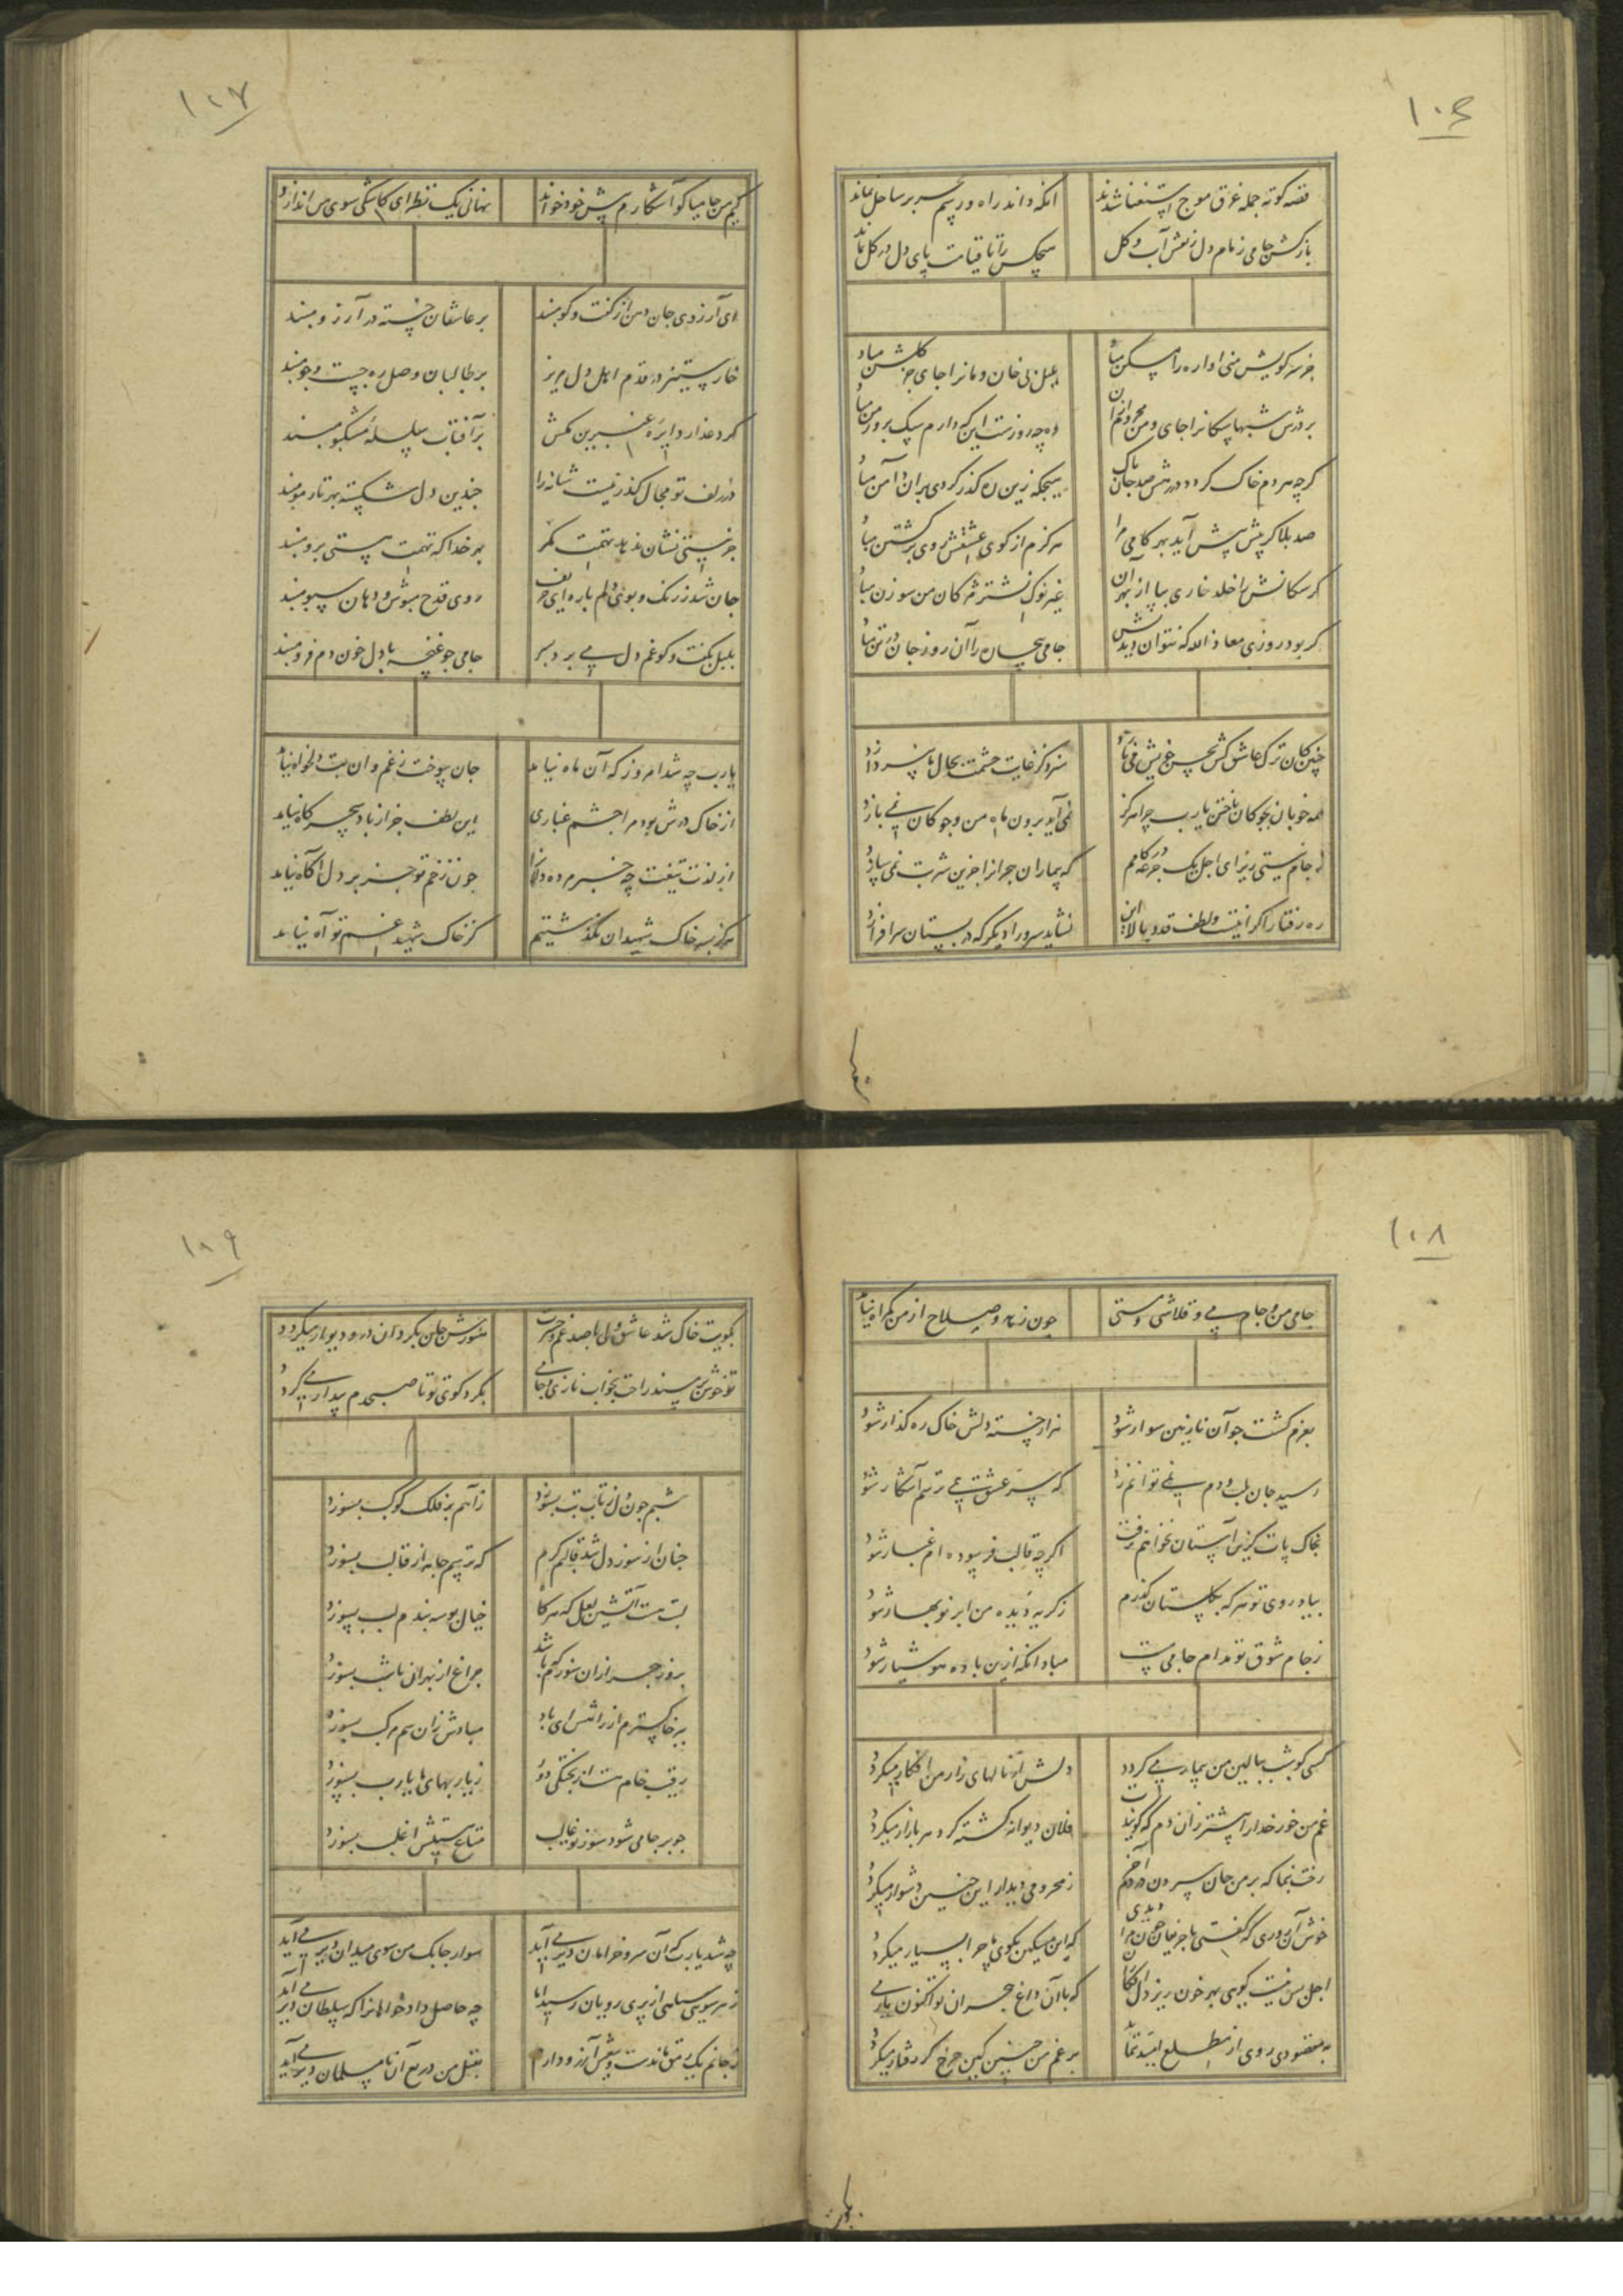 ١٠٦
قصه کوته جمله غرق موج استغنا شدند
انکه داند راه و رسم بحر بر ساحل نماند
بازکش جامی زمام دل ز نقش آب و کل
هیچکس را تا قیامت پای دل در کل نماند
جز سر کویش من اواره را مسکن مباد
بلبل بی خان و مانرا جای جز کلشن مباد
بر درش شبها سکانرا جای و من محروم ازان
وه چه روزست این که دارم سک بروز من مباد
کرچه مردم خاک کردد در رهش صد جان پاک
هیچکه زین ره کذر کردی بران دامن مباد
صد بلا کر پیش پیش آید بهر کامی مرا
هرکزم از کوی عشقش روی برکشتن مباد
کر سکانش را خلد خاری بپا از بهر آن
غیر نوک نشتر مژکان من سوزن مباد
کر بود روزی معاذ الله که نتوان دیدنش
جامی بیچاره را آن روز جان در تن مباد
چنین کان ترک عاشق کش بحسن خویش می نازد
سزد کز غایت حشمت بحال ما نپردازد
همه خوبان بچوکان باختن یارب چرا هرکز
نمی آید برون ماه من و چوکان نمی بازد
ز جام نیستی ریز ای اجل یک جرعه در کامم
که بیماران هجر را جز این شربت نمی سازد
ره رفتار اکر اینست و لطف قد و بالا این
نشاید سرو را دیکر که در بستان سرافرازد
١٠٧
کیم من جامیا کو آشکارم پیش خود خواند
نهانی یک نظر ای کاشکی سوی من اندازد
ای آرزوی جان دهن از کفت و کو مبند
بر عاشقان خسته در آرزو مبند
خار ستیز در قدم اهل دل مریز
بر طالبان وصل ره جست و جو مبند
کرد عذار دایره عنبرین مکش
بر آفتاب سلسله مشکبو مبند
در زلف تو مجال کذر نیست شانه را
چندین دل شکسته بهر تار مو مبند
جز نیستی نشان ندهد تهمت کمر
بهر خدا که تهمت هستی برو مبند
جان شد ز رنک و بوی دلم پاره ای حریف
روی قدح مپوش و دهان سبو مبند
بلبل بکفت و کو غم دل می برد بسر
جامی چو غنچه با دل خون دم فرو مبند
یارب چه شد امروز که آن ماه نیامد
جان سوخت ز غم وان بت دلخواه نیامد
از خاک درش بود مرا چشم غباری
این لطف جز از باد سحرکاه نیامد
از لذت تیغت چه خبر مرده دلانرا
چون زخم تو جز بر دل آکاه نیامد
هرکز بسر خاک شهیدان نکذشتیم
کز خاک شهید غم تو آه نیامد
١٠٨
جامی من و جام می و قلاشی و مستی
چون زهد و صلاح از من کمراه نیامد
بعزم کشت چو آن نازنین سوار شود
هزار خسته دلش خاک ره کذار شود
رسید جان بلب و دم نمی توانم زد
که سر عشق همی ترسم آشکار شود
بخاک پات کزین آستان نخواهم رفت
اکرچه قالب فرسوده ام غبار شود
بیاد روی تو هر که بکلستان کذرم
ز کریه دیده من ابر نوبهار شود
ز جام شوق تو مدام جامی مست
مباد انکه ازین باده هوشیار شود
کسی کو شب ببالین من بیمار می کردد
دلش از نالهای زار من افکار میکردد
غم من خور خدا را بیشتر زان دم که کویندت
فلان دیوانه کشته کرد هر بازار میکردد
رخت بنما که بر من جان سپردن در دم آخر
ز محرومی دیدار این چنین دشوار میکردد
خوش آن دوری که کفتی با حریفان چون مرا دیدی
که این مسکین بکوی ما چرا بسیار میکردد
اجل بس نیست کوی بهر خون ریز دل افکاران
که با آن داغ هجران تو اکنون یار می
به مقصودی روی از مطلع امید ننماید
برغم من چنین کین چرخ کج رفتار میکردد
١٠٩
بکویت خاک شد عاشق ولی با صد غم و حسرت
هنوزش جان بکرد آن در و دیوار میکردد
تو خوش بر بستر راحت بخواب نازی و جامی
بکرد کوی تو تا صبحدم بیدار می کردد
شبم چون دل ز تاب تب بسوزد
ز آهم بر فلک کوکب بسوزد
چنان از سوز دل شد قالبم کرم
که ترسم جامه از قالب بسوزد
لبت هست آتشین لعل که هرکاه
خیال بوسه بندم لب بسوزد
بروز هجر ازان سوزم که باشد
چراغ از بهر آن تا شب بسوزد
مبر خاکسترم از راهش ای باد
مبادش زان سم مرکب بسوزد
رقیب خام هست از پختکی دور
ز یاربهای ما یارب بسوزد
چو بر جامی شود سوز تو غالب
متاع هستیش اغلب بسوزد
چه شد یارب که آن سرو خرامان دیر می آید
سوار چابک من سوی میدان دیر می آید
ز هر سویی سپاهی از پری رویان رسید اما
چه حاصل دادخواهانرا که سلطان دیر می آید
ز جانم یک رمق ماندست و تیغش آرزو دارم
بقتل من دریغ آن نا مسلمان دیر می آید